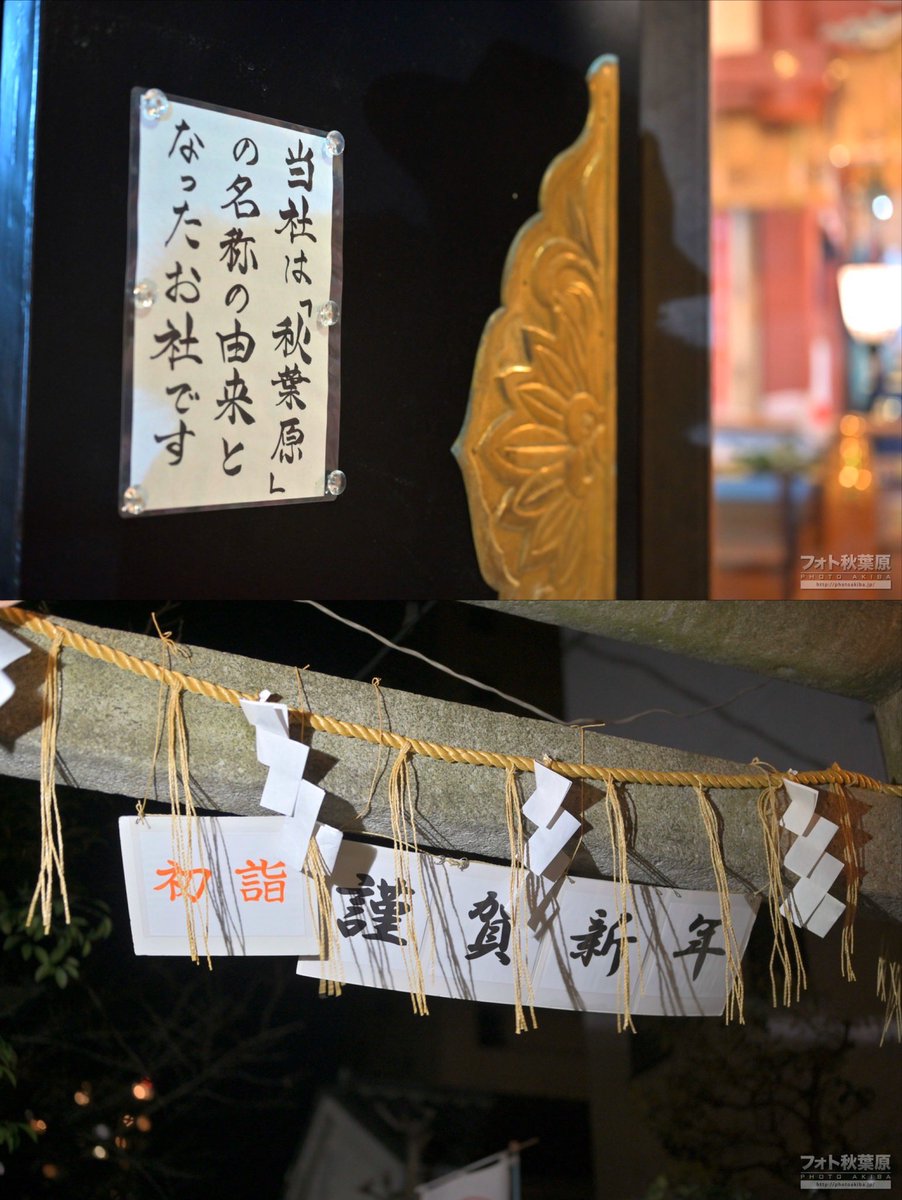 当社は「秋葉原」
の名称の由来と
なったお社です
フォト秋葉原
PHOTO AKIBA
http://photoakiba.jp/
初詣
謹賀新年
フォト秋葉原
PHOTO AKIBA
http://photoakiba.jp/